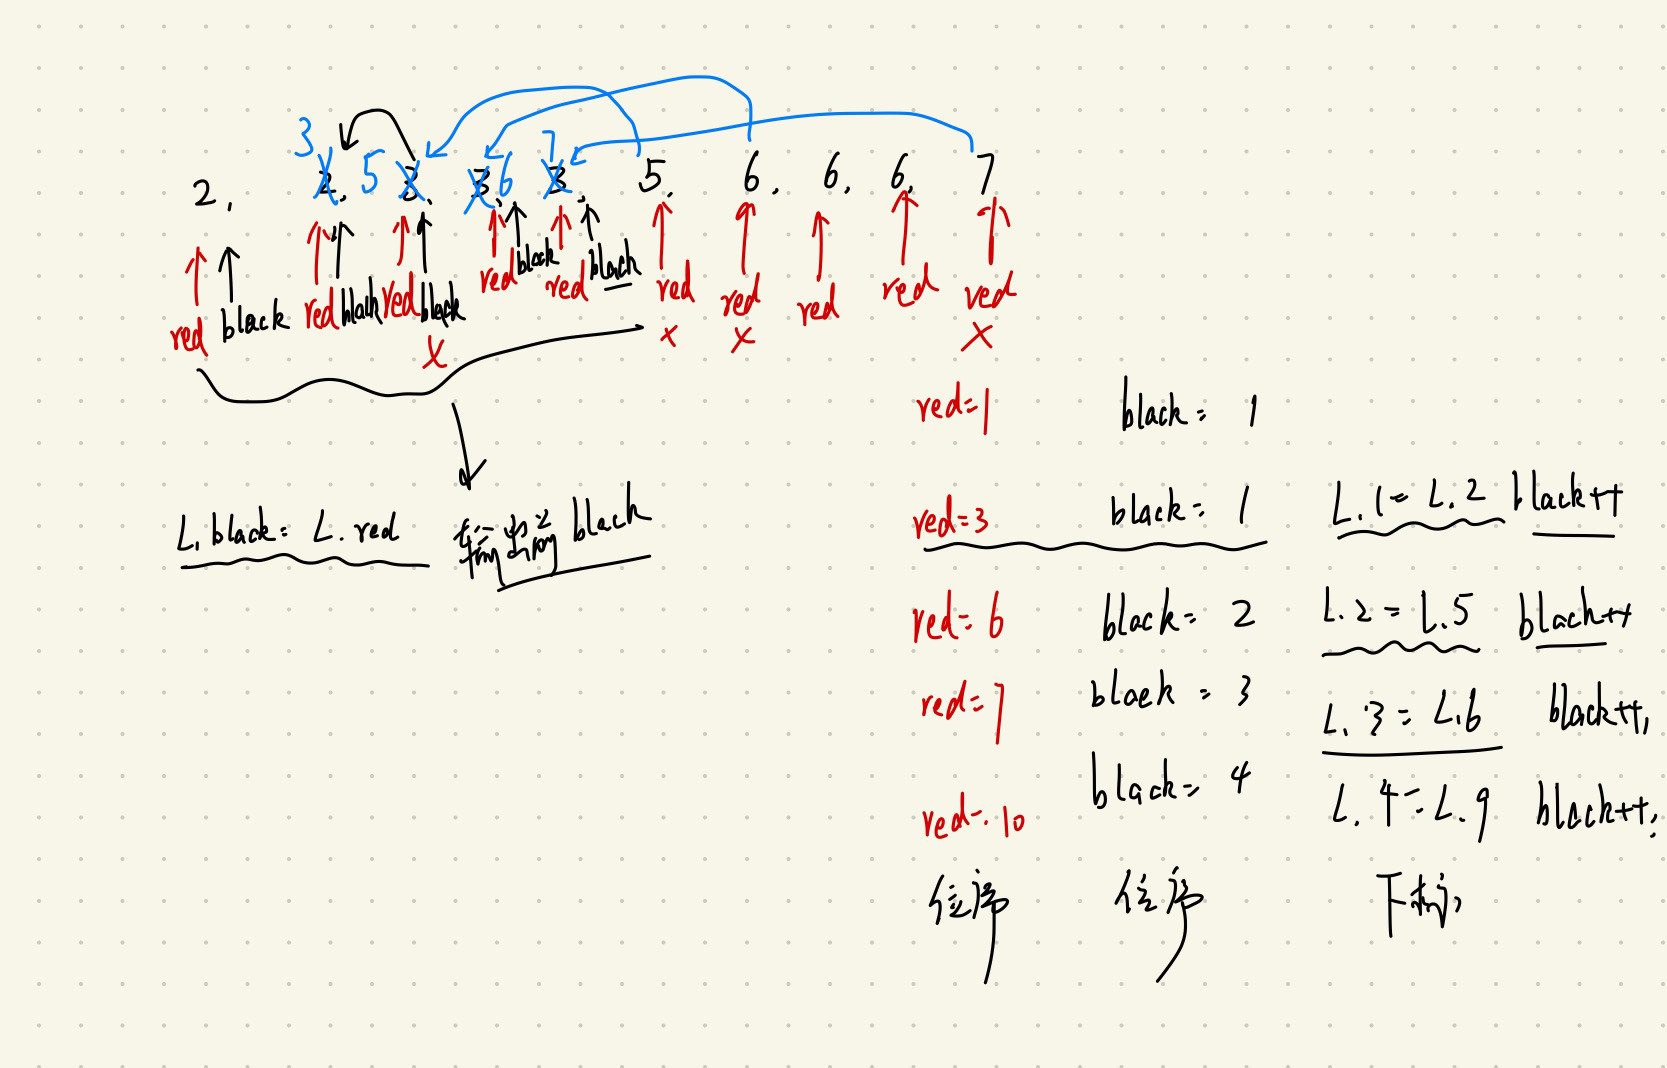 3 7
2, 2, 5 3, 3, 6 3, 5, 6, 6, 6, 7
red black red black red black red black red black red red red red red
x x x x
red=1 black= 1
red=3 black= 1 L.1= L.2 black++
L. black= L. red black
red= 6 black= 2 L.2= L.5 black++
red=7 black = 3 L.3= L.6 black++,
red=.10 black= 4 L.4=L.9 black++;
位序 位序 下标,